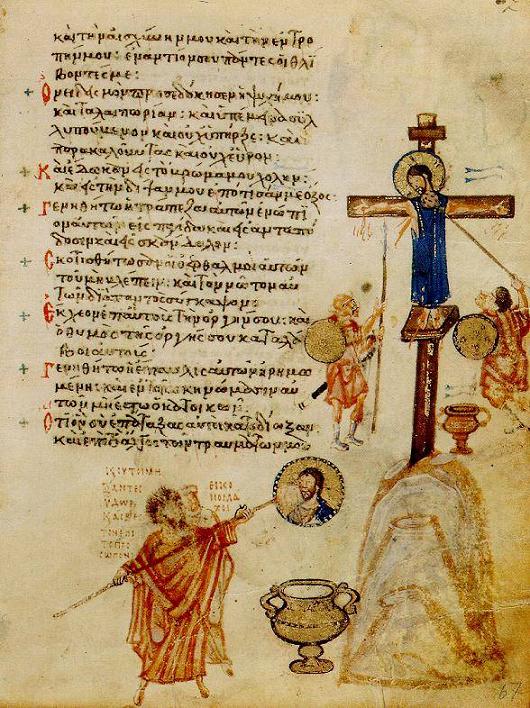 καὶ τὴν αἰσχύνην μου καὶ τὴν ἐντρο
πήν μου: ἐναντίον σου πάντες οἱ θλί
βοντές με:
Ὀνειδισμὸν προσεδόκησεν ἡ ψυχή μου:
καὶ ταλαιπωρίαν: καὶ ὑπέμεινα συλ
λυπούμενον καὶ οὐχ ὑπῆρξε: καὶ
παρακαλοῦντας καὶ οὐχ εὗρον:
Καὶ ἔδωκαν εἰς τὸ βρῶμα μου χολὴν:
καὶ εἰς τὴν δίψαν μου ἐπότισάν με ὄξος:
Γενηθήτω ἡ τράπεζα αὐτῶν ἐνώπι
ον αὐτῶν εἰς παγίδα καὶ εἰς ἀνταπό
δοσιν καὶ εἰς σκάνδαλον:
Σκοτισθήτωσαν οἱ ὀφθαλμοὶ αὐτῶν
τοῦ μὴ βλέπειν: καὶ τὸν νῶτον αὐ
τῶν διὰ παντὸς σύγκαμψον:
Ἔκχεον ἐπ αὐτοὺς τὴν ὀργήν σου: καὶ
ὁ θυμὸς τῆς ὀργῆς σου καταλά
βοι αὐτούς:
Γενηθήτω ἡ ἔπαυλις αὐτῶν ἠρημω
μένη: καὶ ἐν τοῖς σκηνώμασιν αὐ
τῶν μὴ ἔστω ὁ κατοικῶν:
Ὅτι ὃν σὺ ἐπάταξας αὐτοὶ κατεδίωξαν
καὶ ἐπὶ τὸ ἄλγος τῶν τραυμάτων μου
ΕΙΚΟ
ΥΔΩΡ
67